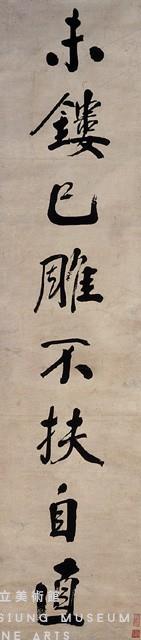 未鏤已雕不扶自直
立美術館
SIUNG MUSEUM
NE ARTS